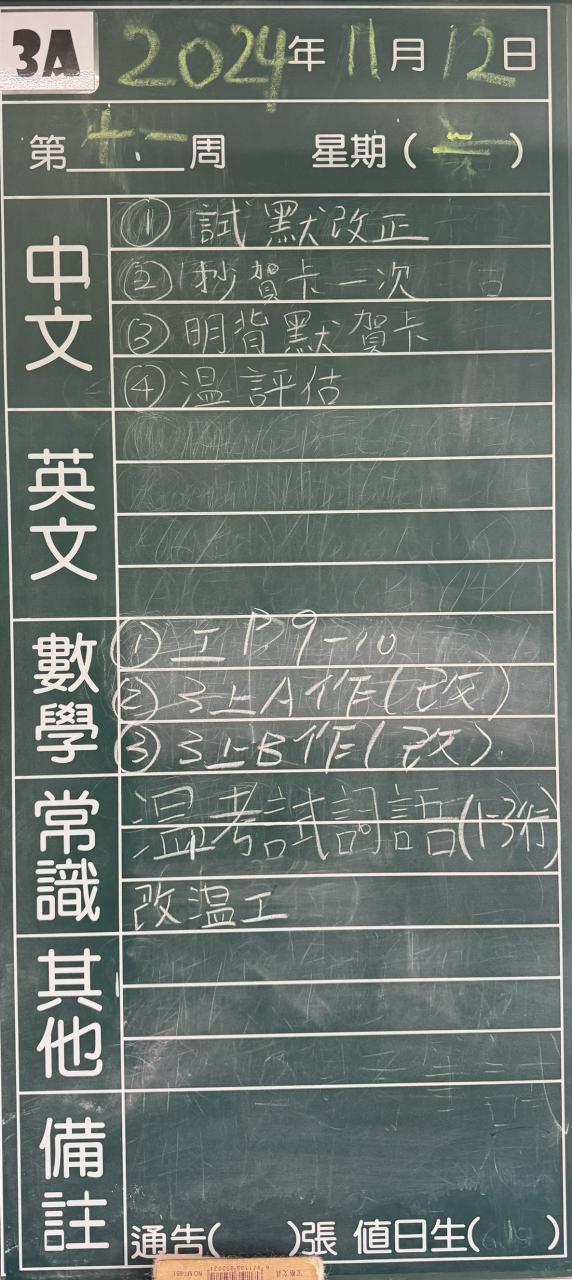 3A
2024年11月12日
第十一周 星期(二)
中文
① 試默改正
② 抄賀卡一次
③ 明背默賀卡
④ 溫評估
英文
數學
① 工P.9-10
② 3上A作(改)
③ 3上B作(改)
常識
溫考試詞語(1-3行)
改溫工
其他
備註
通告( )張 值日生( )